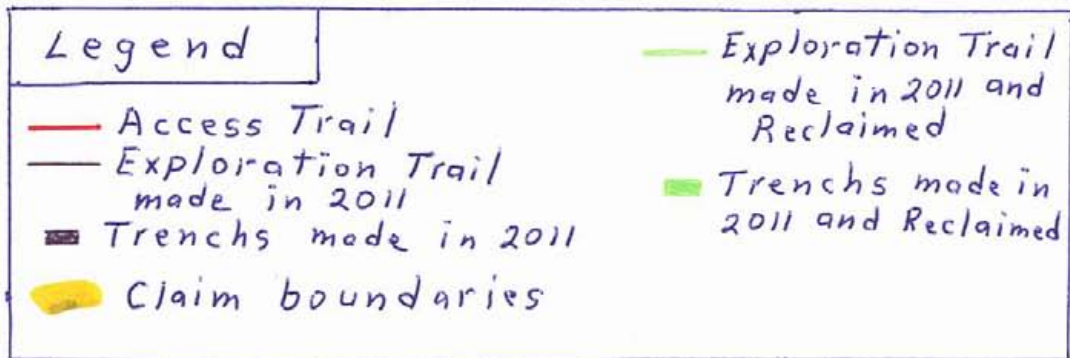 Legend
Access Trail
Exploration Trail
made in 2011
Trenchs made in 2011
Claim boundaries
Exploration Trail
made in 2011 and
Reclaimed
Trenchs made in
2011 and Reclaimed